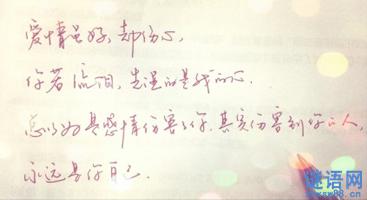 爱情虽好，却伤心，
你若流泪，先湿的是我的心.
总以为是感情伤害了你，其实伤害到你的人，
永远是你自己.
谜语网